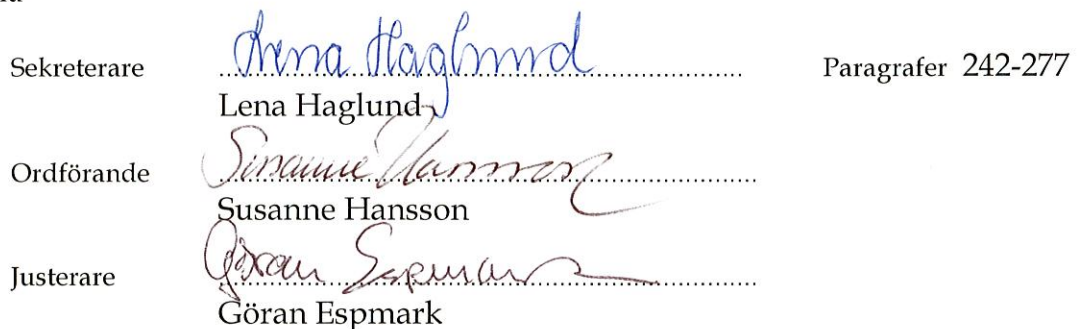 Sekreterare Lena Haglund Paragrafer 242-277
Lena Haglund
Ordförande Susanne Hansson
Susanne Hansson
Justerare Göran Espmark
Göran Espmark